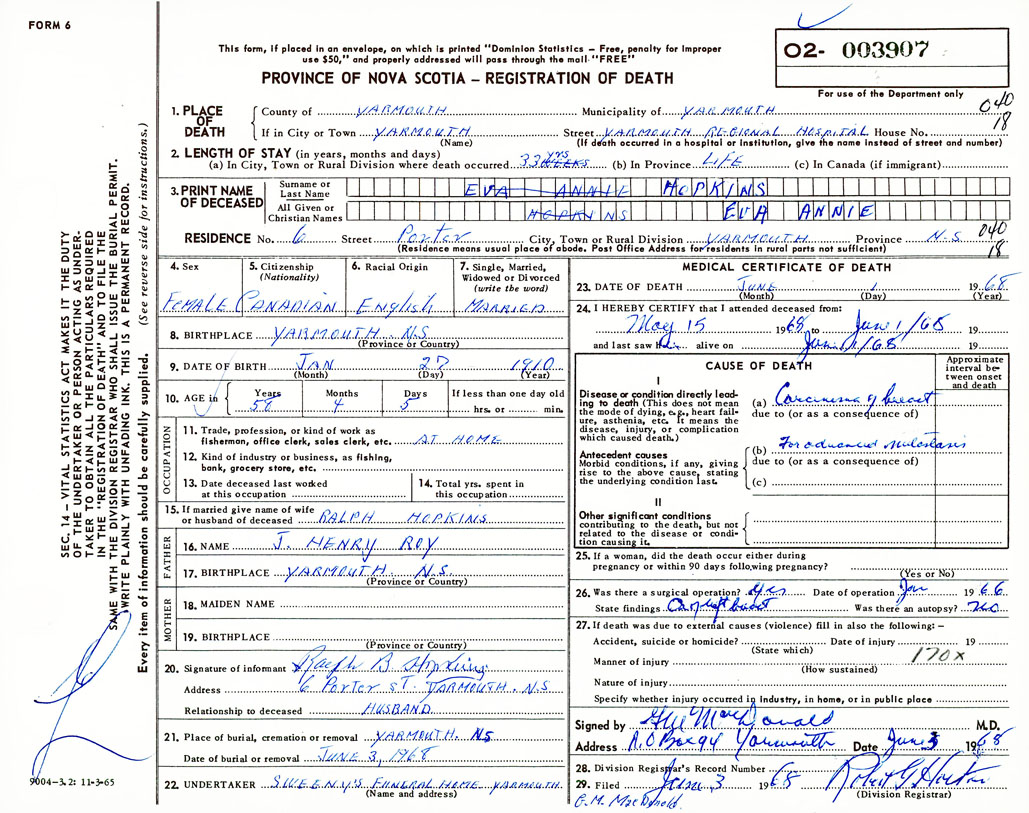 FORM 6
This form, if placed in an envelope, on which is printed "Dominion Statistics – Free, penalty for improper
use $50," and properly addressed will pass through the mail "FREE"
PROVINCE OF NOVA SCOTIA – REGISTRATION OF DEATH
02- 003907
For use of the Department only
040
18
1. PLACE OF DEATH
County of YARMOUTH Municipality of YARMOUTH
If in City or Town YARMOUTH Street YARMOUTH REGIONAL HOSPITAL House No.
(Name) (If death occurred in a hospital or institution, give the name instead of street and number)
2. LENGTH OF STAY (in years, months and days)
(a) In City, Town or Rural Division where death occurred 33 WEEKS yrs (b) In Province LIFE (c) In Canada (if immigrant)
3. PRINT NAME OF DECEASED
Surname or Last Name EVA ANNIE HOPKINS
All Given or Christian Names HOPKINS EVA ANNIE
RESIDENCE No. 6 Street Porter City, Town or Rural Division YARMOUTH Province N.S.
(Residence means usual place of abode. Post Office Address for residents in rural parts not sufficient)
040
18
4. Sex
FEMALE
5. Citizenship (Nationality)
CANADIAN
6. Racial Origin
English
7. Single, Married, Widowed or Divorced (write the word)
MARRIED
8. BIRTHPLACE YARMOUTH N.S
(Province or Country)
9. DATE OF BIRTH JAN 27 1910
(Month) (Day) (Year)
10. AGE in Years Months Days If less than one day old
58 4 5 hrs. or min.
OCCUPATION
11. Trade, profession, or kind of work as
fisherman, office clerk, sales clerk, etc. AT HOME
12. Kind of industry or business, as fishing,
bank, grocery store, etc.
13. Date deceased last worked
at this occupation
14. Total yrs. spent in
this occupation
15. If married give name of wife
or husband of deceased RALPH HOPKINS
FATHER
16. NAME J. HENRY ROY
17. BIRTHPLACE YARMOUTH. N.S.
(Province or Country)
MOTHER
18. MAIDEN NAME
19. BIRTHPLACE
(Province or Country)
20. Signature of informant Ralph B Hopkins
Address 6 PORTER ST. YARMOUTH. N.S
Relationship to deceased HUSBAND
21. Place of burial, cremation or removal YARMOUTH. NS
Date of burial or removal JUNE 3, 1968
22. UNDERTAKER SWEENY'S FUNERAL HOME YARMOUTH
(Name and address)
MEDICAL CERTIFICATE OF DEATH
23. DATE OF DEATH JUNE 1 1968
(Month) (Day) (Year)
24. I HEREBY CERTIFY that I attended deceased from:
May 15 1968 to June 1/68 19
and last saw alive on June 1/68 19
CAUSE OF DEATH
Approximate interval between onset and death
I
Disease or condition directly leading to death (This does not mean
the mode of dying, e.g., heart failure, asthenia, etc. It means the
disease, injury, or complication
which caused death.)
(a) Carcinoma of breast
due to (or as a consequence of)
Antecedent causes
Morbid conditions, if any, giving
rise to the above cause, stating
the underlying condition last.
(b) Far advanced metastasis
due to (or as a consequence of)
(c)
II
Other significant conditions
contributing to the death, but not
related to the disease or condition causing it.
25. If a woman, did the death occur either during
pregnancy or within 90 days following pregnancy?
(Yes or No)
26. Was there a surgical operation? yes Date of operation Jan 1966
State findings Ca left breast Was there an autopsy? no
27. If death was due to external causes (violence) fill in also the following: –
Accident, suicide or homicide? Date of injury 19
(State which)
170x
Manner of injury
(How sustained)
Nature of injury
Specify whether injury occurred in industry, in home, or in public place
Signed by MacDonald M.D.
Address P.O Box 94 Yarmouth Date June 3 1968
28. Division Registrar's Record Number
29. Filed June 3 1968 Robert G Horton
(Division Registrar)
G. M. MacDonald
SEC. 14 – VITAL STATISTICS ACT MAKES IT THE DUTY
OF THE UNDERTAKER OR PERSON ACTING AS UNDER-
TAKER TO OBTAIN ALL THE PARTICULARS REQUIRED
IN THE "REGISTRATION OF DEATH" AND TO FILE THE
SAME WITH THE DIVISION REGISTRAR WHO SHALL ISSUE THE BURIAL PERMIT.
WRITE PLAINLY WITH UNFADING INK. THIS IS A PERMANENT RECORD.
Every item of information should be carefully supplied. (See reverse side for instructions.)
9004-3.2: 11-3-65